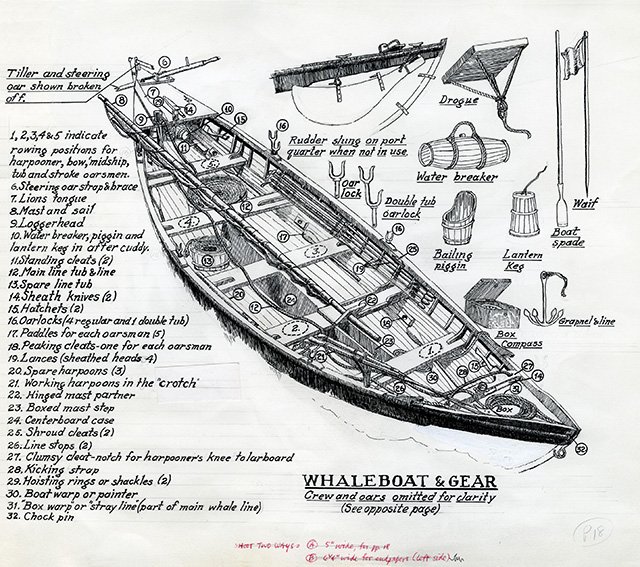 Tiller and steering
oar shown broken
off.
1, 2, 3, 4 & 5 indicate
rowing positions for
harpooner, bow, midship,
tub and stroke oarsmen.
6. Steering oar strap & brace
7. Lions tongue
8. Mast and sail
9. Loggerhead
10. Water breaker, piggin and
lantern keg in after cuddy.
11. Standing cleats (2)
12. Main line tub & line
13. Spare line tub
14. Sheath knives (2)
15. Hatchets (2)
16. Oarlocks (4 regular and 1 double tub)
17. Paddles for each oarsman (5)
18. Peaking cleats-one for each oarsman
19. Lances (sheathed heads-4)
20. Spare harpoons (3)
21. Working harpoons in the "crotch"
22. Hinged mast partner
23. Boxed mast step
24. Centerboard case
25. Shroud cleats (2)
26. Line stops (2)
27. Clumsy cleat-notch for harpooner's knee to larboard
28. Kicking strap
29. Hoisting rings or shackles (2)
30. Boat warp or painter
31. "Box warp or "stray line" (part of main whale line)
32. Chock pin
Rudder slung on port
quarter when not in use.
Drogue
Water breaker
Oar
lock
Double tub
oarlock
Bailing
piggin
Lantern
Keg
Boat
spade
Waif
Box
Compass
Grapnel & line
Box
WHALEBOAT & GEAR
Crew and oars omitted for clarity
(See opposite page)
SHOOT TWO WAYS: A 5" wide, for pp 18
P.18